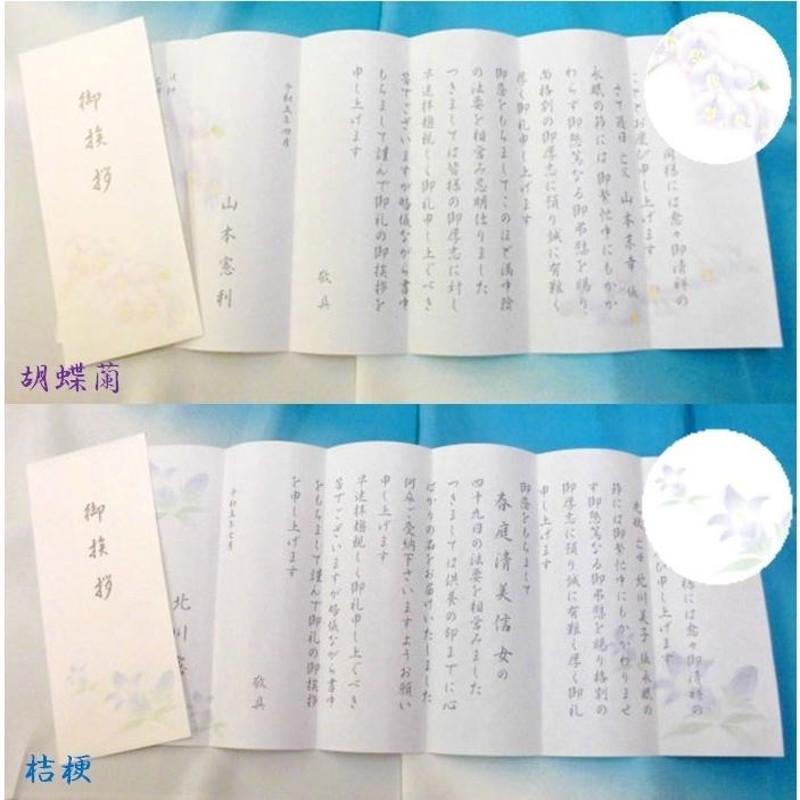 御挨拶
同様には愈々御清祥の
こととお慶び申し上げます
さて過日 亡父 山本末幸 儀
永眠の節には御繁忙中にもかか
わらず御懇篤なる御弔慰を賜り
尚格別の御厚志に預り誠に有難く
厚く御礼申し上げます
御蔭をもちましてこのほど満中陰
の法要を相営み忌明仕りました
つきましては皆様の御厚志に対し
早速拝趨親しく御礼申し上ぐべき
筈でございますが略儀ながら書中
をもちまして謹んで御礼の御挨拶を
申し上げます
敬具
令和五年四月
山本憲利
胡蝶蘭
御挨拶
様には愈々御清祥の
び申し上げます
亡母 北川美子 儀 永眠の
節には御繁忙中にもかかわりませ
ず御懇篤なる御弔慰を賜り格別の
御厚志に預り誠に有難く厚く御礼
申し上げます
御蔭をもちまして
春庭清美信女の
四十九日の法要を相営みました
つきましては供養の印までに心
ばかりの品をお届けいたしました
何卒ご受納下さいますようお願い
申し上げます
早速拝趨親しく御礼申し上ぐべき
筈でございますが略儀ながら書中
をもちまして謹んで御礼の御挨拶
を申し上げます
敬具
令和五年七月
北川
桔梗